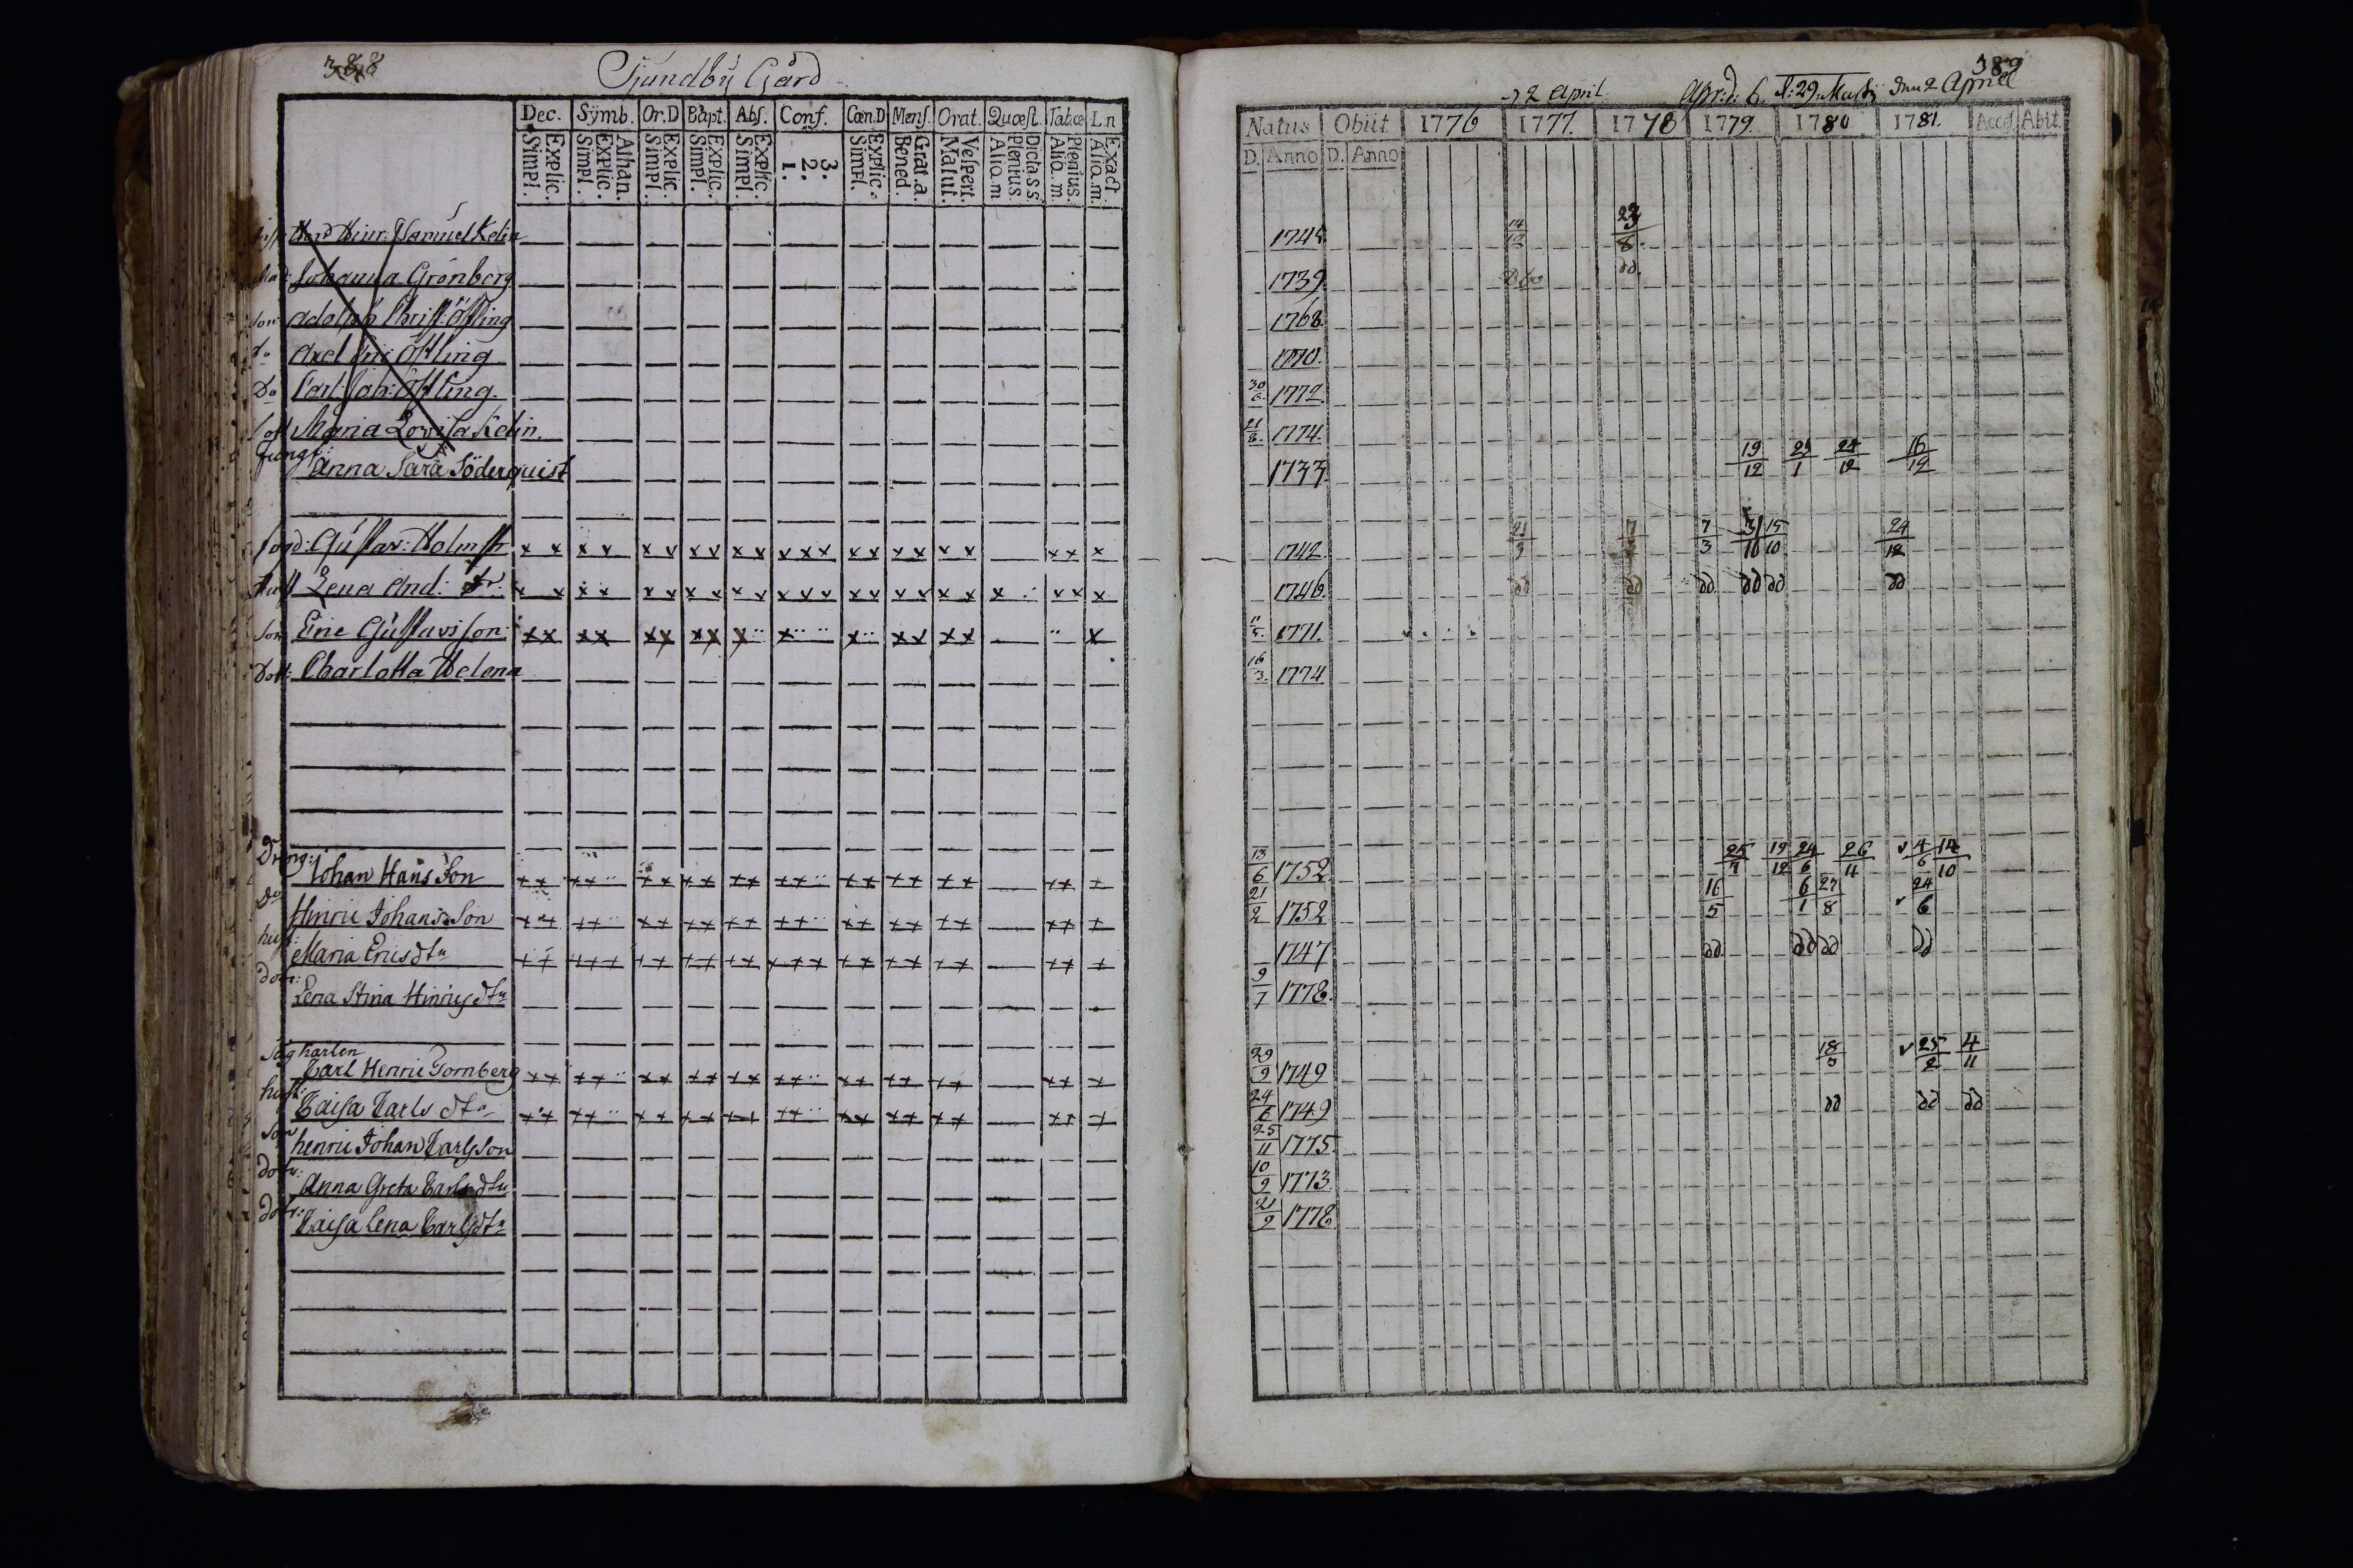 388
Sjundbÿ Gård
Dec. Sÿmb. Or.D Bapt. Abs. Conf. Cœn.D Mens. Orat. Quæst. Tab.œ L.n
Explic. Simpl. Athan. Explic. Simpl. Explic. Simpl. Explic. Simpl. Explic. Simpl. 3. 2. 1. Explic. Simpl. Grat.a. Bened. Vespert. Matut. Dicta S.S. Plenius. Aliq.m Plenius. Aliq.m. Exact. Aliq.m.
Hinr: Samuel Kelin
Johanna Grönberg
Son Adolph Christ: Öfling
do Axel Eric Öfling
Do Carl Joh: Öfling.
Dott Maria Lovisa Kelin.
Jungf:
Anna Sara Söderquist
fogd: Gustav: Holmstr
Hust Lena And: dr.
Son Eric Gustavsson:
Dott: Charlotta Helena
Dräng:
Johan Hans Son
Do
Hinric Johans Son
hust:
Maria Erics dtr
dotr:
Lena Stina Hinrics dtr
Såg karlen
Carl Henric Tornberg
hust:
Caisa Carls dtr
Son
henric Johan Carlsson
dotr:
Anna Greta Carls dtr
dotr:
Caisa Lena Carls dtr
389
2 April. Apr: d: 6. d: 29 Martij den 2 April
Natus Obiit 1776 1777. 1778 1779. 1780 1781. Acces. Abit.
D. Anno D. Anno
1745. 14/12 23/8.
1739. Ddo dd.
1768.
1770.
30/6. 1772
21/8. 1774.
1733. 19/12 25/1 28/12 16/12
1742. 7/3 15/10 24/12
1746. dd dd dd dd dd dd
11/5. 1771.
16/3. 1774
13/6 1752 25/7 19/12 24/6 26/11 4/6 14/10
21/2 1752 16/5 6/1 27/8 24/6
1747 dd dd dd dd
9/7 1778.
29/9 1749 18/3 25/2 4/11
24/6 1749 dd dd dd
25/11 1775.
10/2 1773
21/2 1778